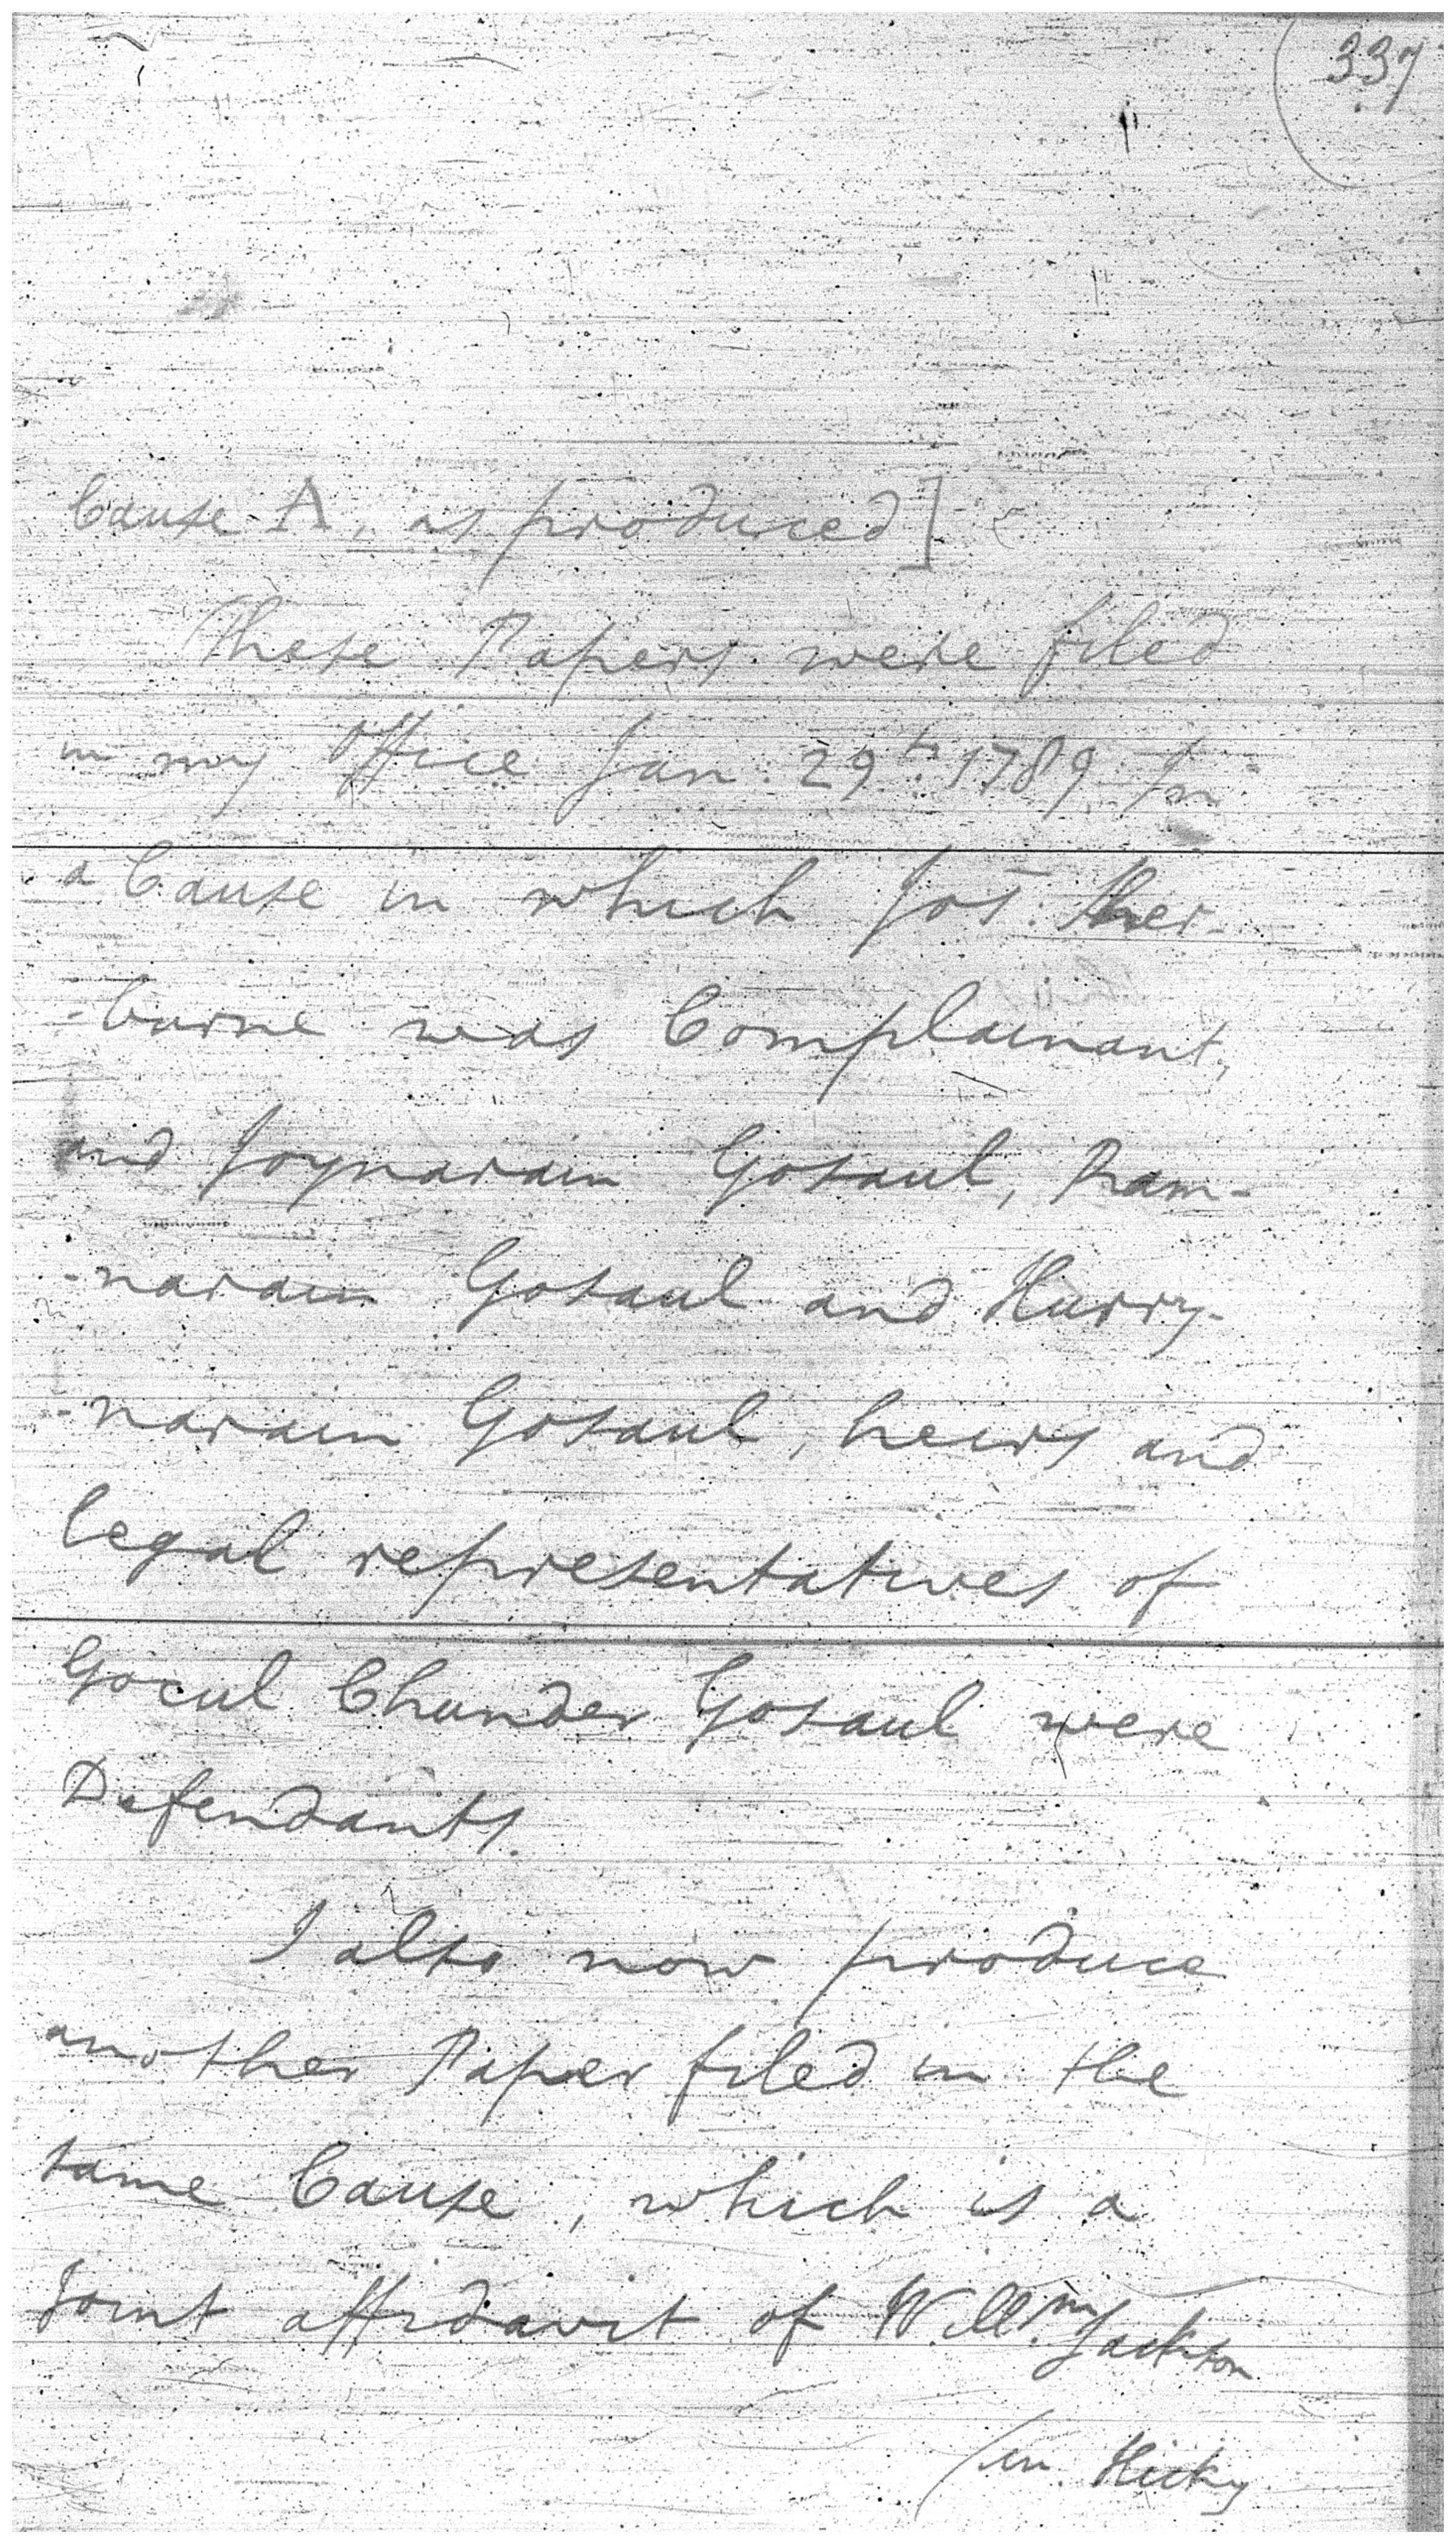 337
Cause A, as produced]
These Papers were filed
in my Office Jan. 29th. 1789 In
a Cause in which Jos: Sher-
-burne was Complainant,
and Joynarain Gosaul, Ram-
-narain Gosaul and Hurry-
-narain Gosaul, heirs and
legal representatives of
Gocul Chunder Gosaul were
Defendants.
I also now produce
another Paper filed in the
same Cause, which is a
joint affidavit of Willm. Jackson
Hicky